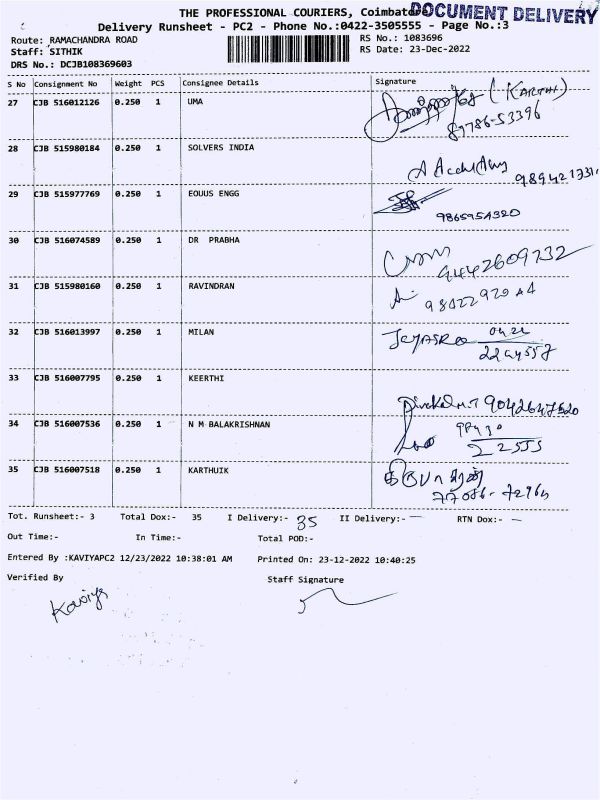 THE PROFESSIONAL COURIERS, Coimbatore
DOCUMENT DELIVERY
Delivery Runsheet - PC2 - Phone No.:0422-3505555 - Page No.:3
Route: RAMACHANDRA ROAD RS No.: 1083696
Staff: SITHIK RS Date: 23-Dec-2022
DRS No.: DCJB108369603
S No Consignment No Weight PCS Consignee Details Signature
27 CJB 516012126 0.250 1 UMA (KARTHI)
87786-53396
28 CJB 515980184 0.250 1 SOLVERS INDIA
989421331
29 CJB 515977769 0.250 1 EOUUS ENGG
9865954320
30 CJB 516074589 0.250 1 DR PRABHA
9442609732
31 CJB 515980160 0.250 1 RAVINDRAN
32 CJB 516013997 0.250 1 MILAN JEYASREE 0422
2244557
33 CJB 516007795 0.250 1 KEERTHI
9042647620
34 CJB 516007536 0.250 1 N M BALAKRISHNAN
22555
35 CJB 516007518 0.250 1 KARTHUIK
Tot. Runsheet:- 3 Total Dox:- 35 I Delivery:- 35 II Delivery:- – RTN Dox:- –
Out Time:- In Time:- Total POD:-
Entered By :KAVIYAPC2 12/23/2022 10:38:01 AM Printed On: 23-12-2022 10:40:25
Verified By Staff Signature
Kaviya